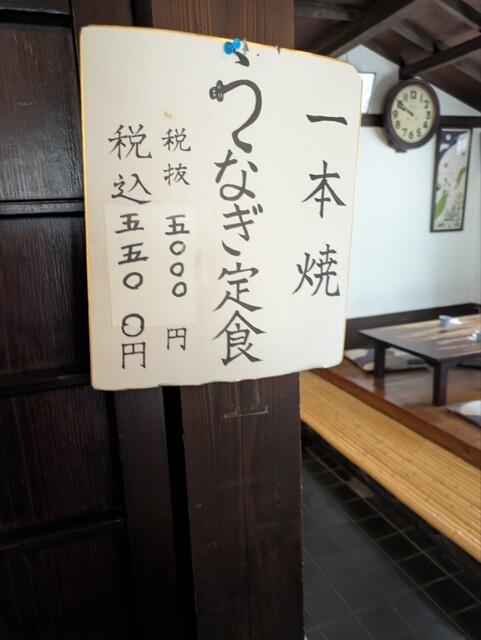 一本焼
うなぎ定食
税抜 五〇〇〇円
税込 五五〇〇円